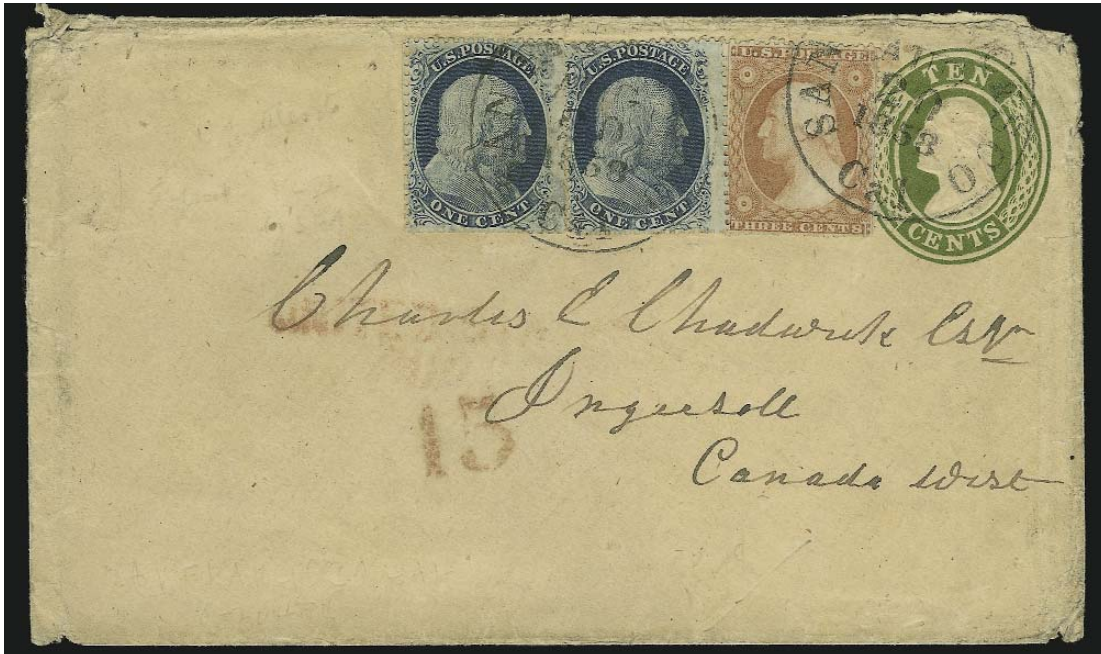 U.S. POSTAGE
ONE CENT
U.S. POSTAGE
ONE CENT
U.S. POSTAGE
THREE CENTS
TEN
CENTS
SAN
1858
Cal
Charles E Chadwick Esqr
Ingersoll
Canada West
15